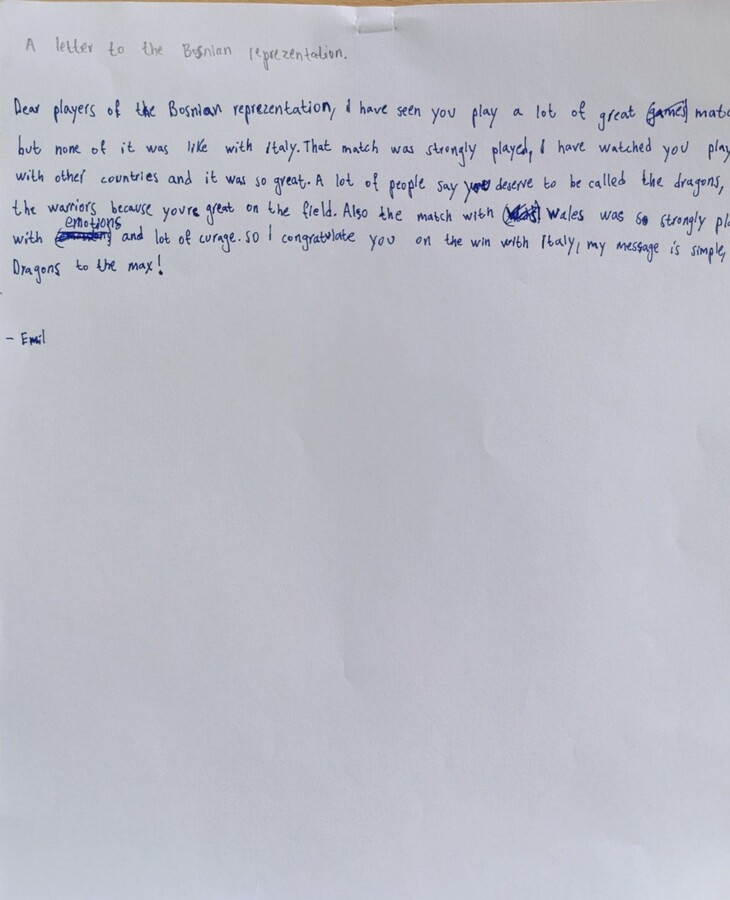 A letter to the Bosnian reprezentation.
Dear players of the Bosnian reprezentation, I have seen you play a lot of great (games) matc
but none of it was like with Italy. That match was strongly played, I have watched you play
with other countries and it was so great. A lot of people say you deserve to be called the dragons,
the warriors because youre great on the field. Also the match with Wales was so strongly pla
emotions
with and lot of curage. So I congratulate you on the win with Italy, my message is simple,
Dragons to the max!
- Emil